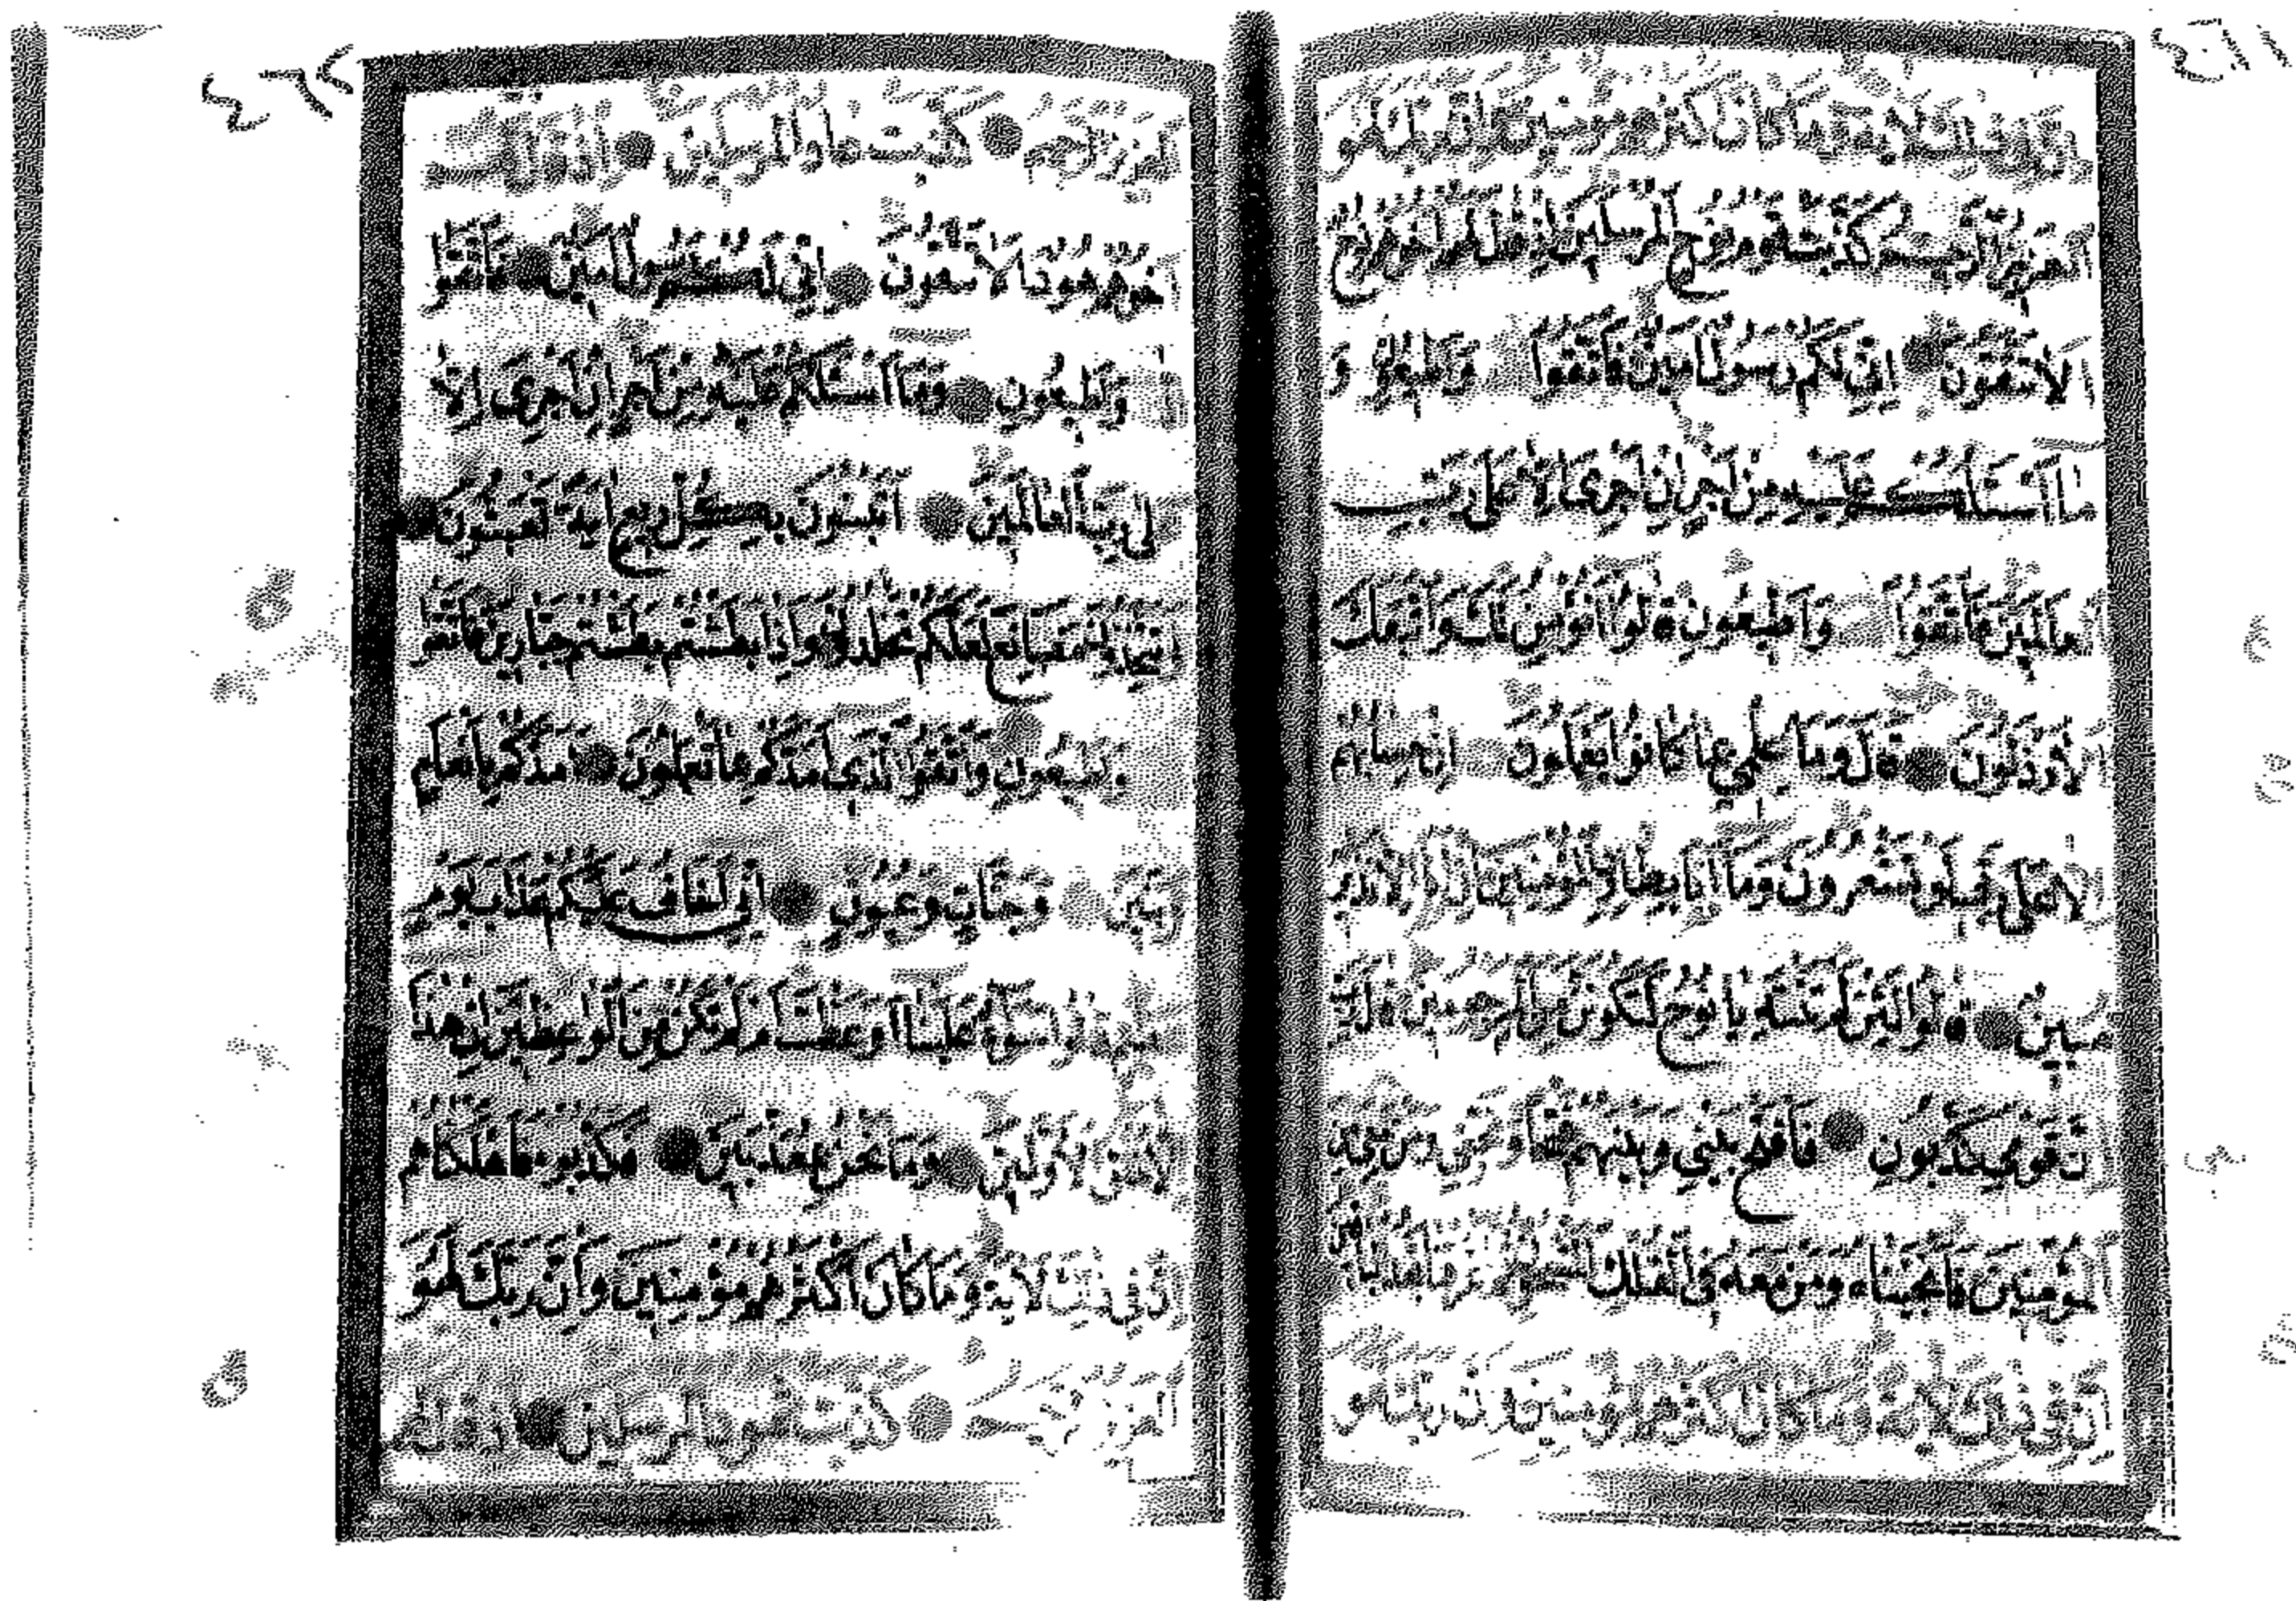 ٤٦١
لهو
العزيز الرحيم كذبت قوم نوح المرسلين إذ قال لهم أخوهم نوح
ألا تتقون إني لكم رسول أمين فاتقوا وأطيعون و
ما أسئلكم عليه من أجر إن أجري إلا على رب
العالمين فاتقوا وأطيعون قالوا أنؤمن لك واتبعك
الأرذلون قال وما علمي بما كانوا يعملون إن حسابهم
إلا على ربي لو تشعرون وما أنا بطارد المؤمنين إن أنا إلا نذير
مبين قالوا لئن لم تنته يا نوح لتكونن من المرجومين قال رب
إن قومي كذبون فافتح بيني وبينهم فتحا ونجني ومن معي
من المؤمنين فأنجيناه ومن معه في الفلك
إن في ذلك لآية وما كان أكثرهم مؤمنين وإن ربك لهو
٤٦٢
العزيز الرحيم كذبت عاد المرسلين إذ قال لهم
أخوهم هود ألا تتقون إني لكم رسول أمين فاتقوا
وأطيعون وما أسئلكم عليه من أجر إن أجري إلا
على رب العالمين أتبنون بكل ريع آية تعبثون
وتتخذون مصانع لعلكم تخلدون وإذا بطشتم بطشتم جبارين فاتقوا
وأطيعون واتقوا الذي أمدكم بما تعلمون أمدكم بأنعام
وبنين وجنات وعيون إني أخاف عليكم عذاب يوم
قالوا سواء علينا أوعظت أم لم تكن من الواعظين إن هذا
إلا خلق الأولين وما نحن بمعذبين فكذبوه فأهلكناهم
إن في ذلك لآية وما كان أكثرهم مؤمنين وإن ربك لهو
العزيز الرحيم كذبت ثمود المرسلين إذ قال لهم